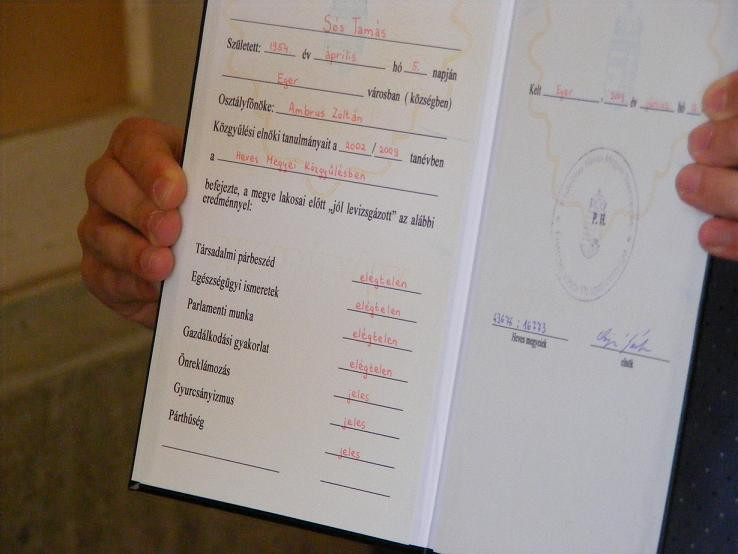 Sós Tamás
Született: 1954. év április hó 5. napján
Eger városban (községben)
Osztályfőnöke: Ambrus Zoltán
Közgyűlési elnöki tanulmányait a 2002/2009 tanévben
a Heves Megyei Közgyűlésben
befejezte, a megye lakosai előtt „jól levizsgázott” az alábbi
eredménnyel:
Társadalmi párbeszéd elégtelen
Egészségügyi ismeretek elégtelen
Parlamenti munka elégtelen
Gazdálkodási gyakorlat elégtelen
Önreklámozás jeles
Gyurcsányizmus jeles
Párthűség jeles
Kelt Eger, 2009 év június hó
P. H.
Heves megyeiek
elnök